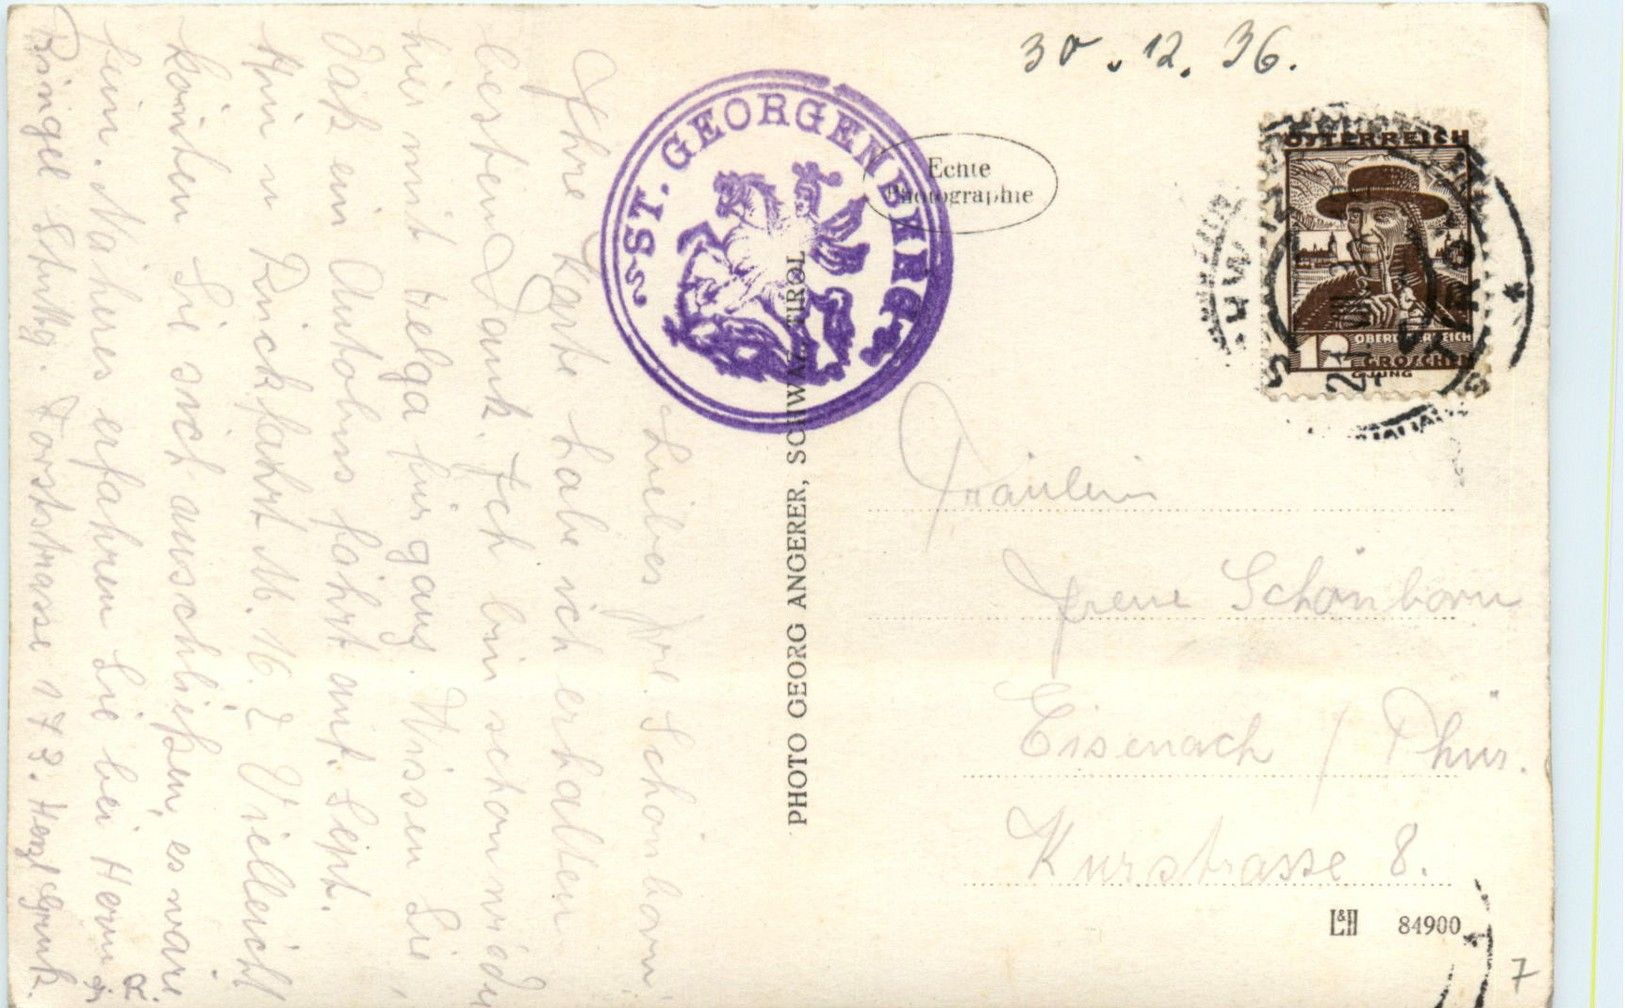 30.12.36.
ST. GEORGENBERG
Echte
Photographie
ÖSTERREICH
12
OBERÖSTERREICH
GROSCHEN
G.JUNG
SCHWAZ
TIROL
Liebes Frl. Schönborn,
Ihre Karte habe ich erhalten
besten Dank. Ich bin schon wieder
hier mit Helga hier ganz. Wissen Sie
daß ein Autobus fährt auf. Sept.
Hin u Rückfahrt M. 16. Z Vielleicht
könnten Sie sich anschließen, es wäre
fein. Näheres erfahren Sie bei Herrn
Ringel Stuttg. Forststrasse 173. Herzl Gruß
PHOTO GEORG ANGERER, SCHWAZ-TIROL
Fräulein
Irene Schönborn
Eisenach / Thür.
Kurstrasse 8.
L&H 84900
7